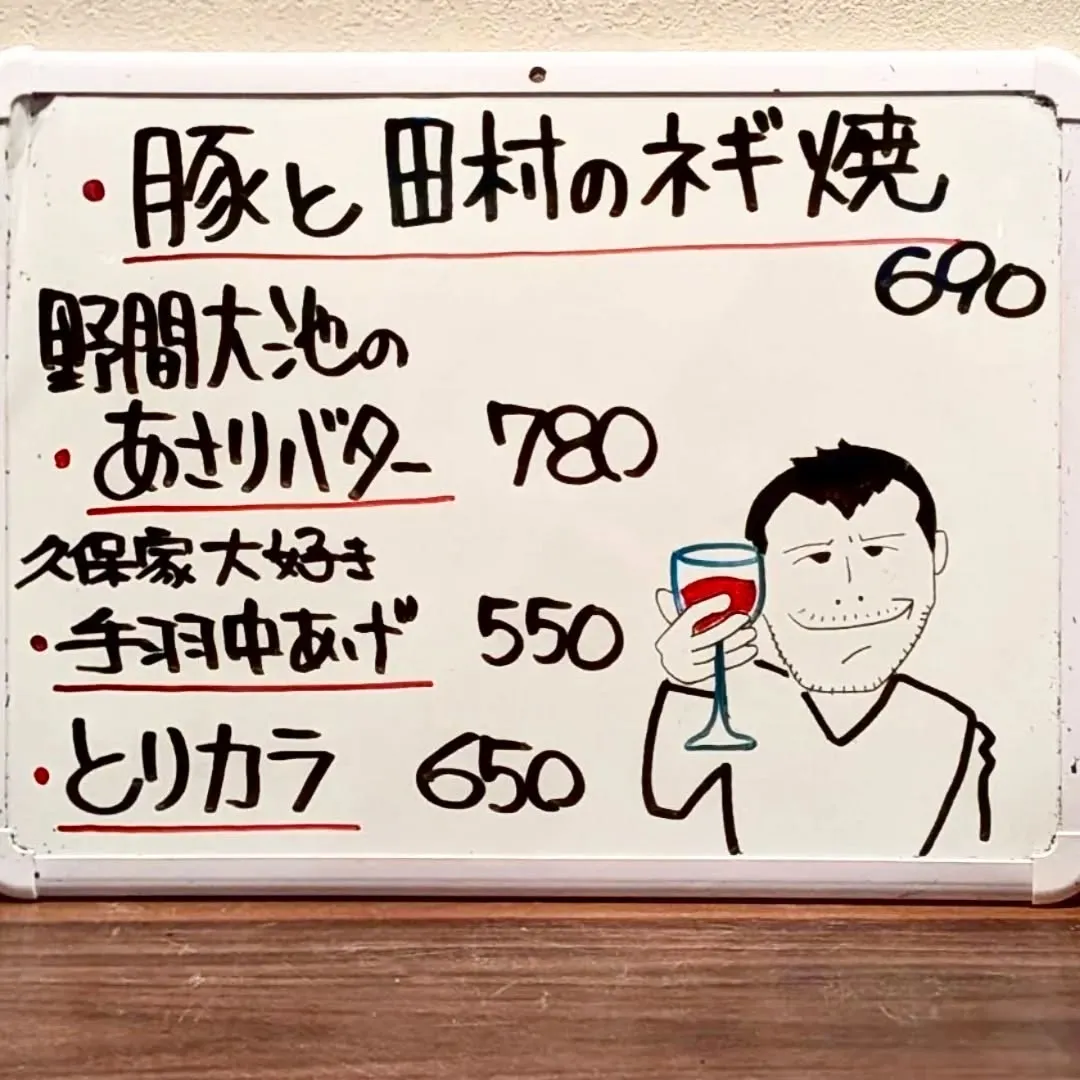 ・豚と田村のネギ焼
690
野間大池の
・あさりバター 780
久保家大好き
・手羽中あげ 550
・とりカラ 650